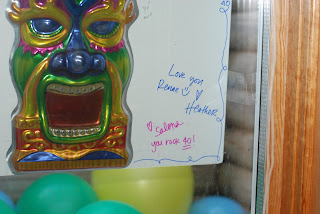 40
Love you
Renee
Heather
Salena
you rock 40!